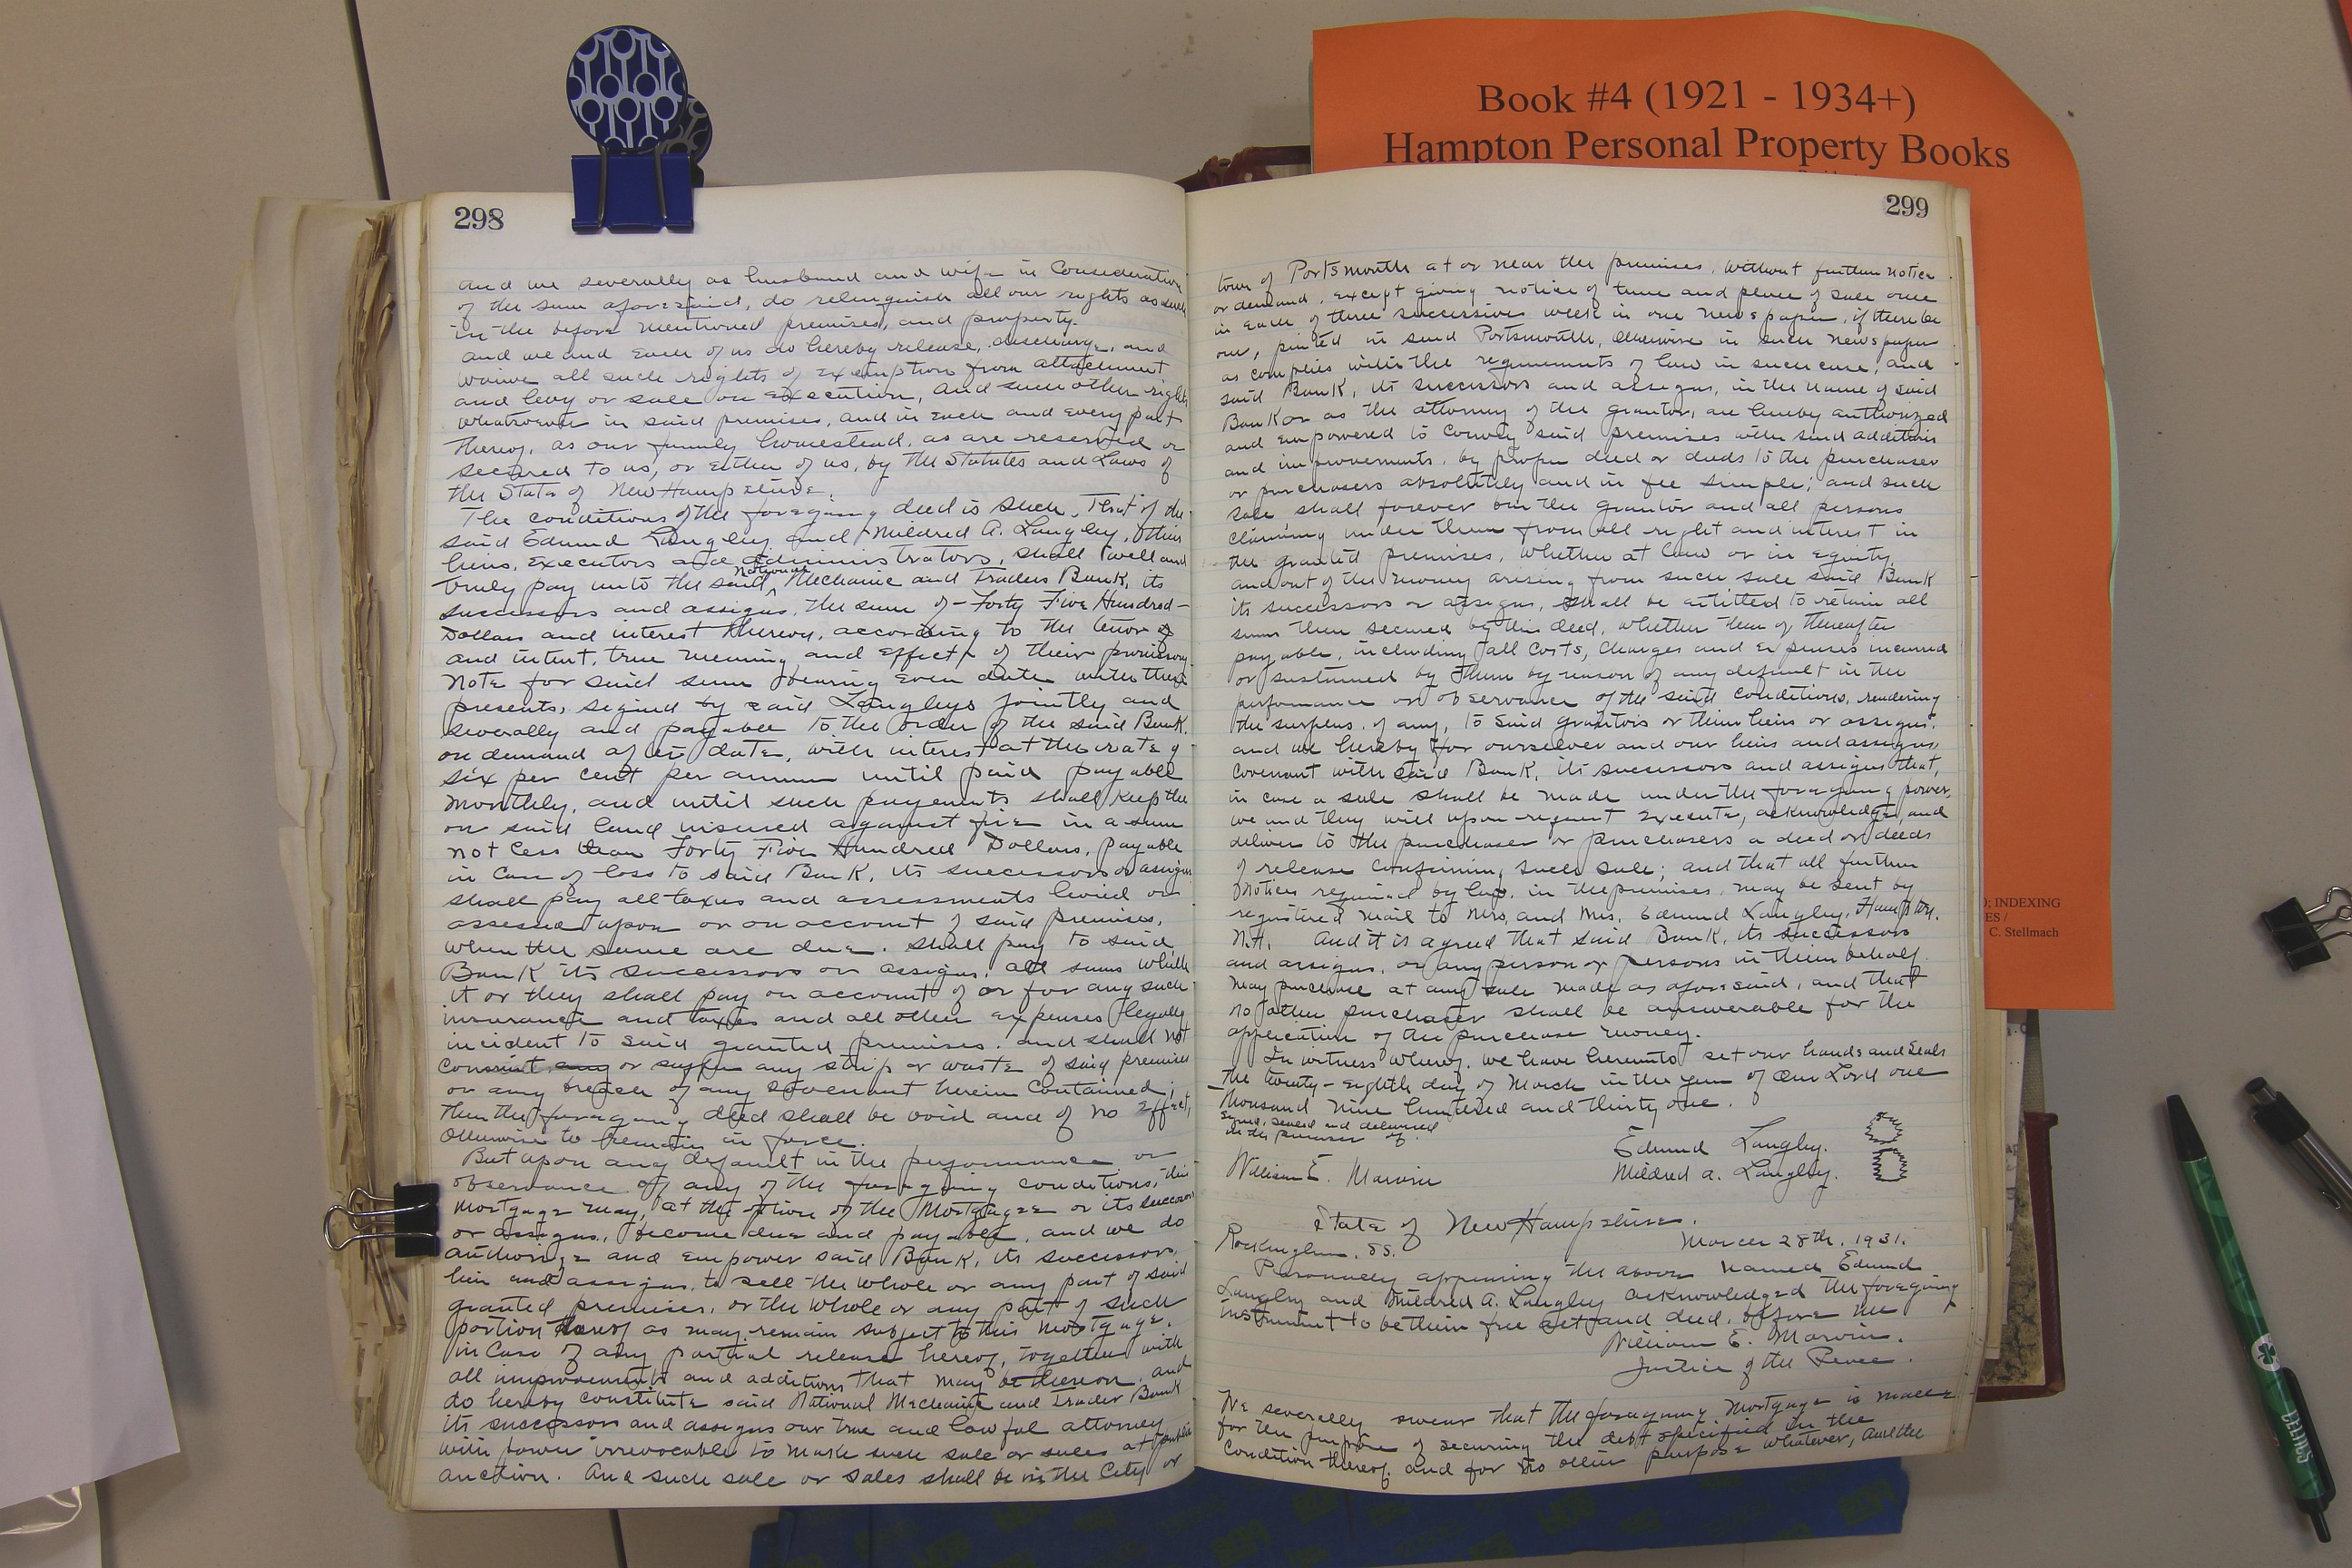 Book #4 (1921 - 1934+)
Hampton Personal Property Books
; INDEXING
ES /
C. Stellmach
298
and we severally as husband and wife in Consideration
of the sum aforesaid, do relinquish all our rights as such
in the before mentioned premises, and property.
and we and Each of us do hereby release, discharge, and
waive all such rights of exemption from attachment
and levy or sale on execution, and such other rights
whatsoever in said premises, and in Each and every part
thereof, as our family homestead, as are reserved or
secured to us, or Either of us, by the Statutes and Laws of
the State of New Hampshire.
The conditions of the foregoing deed is such, That if the
said Edmund Langley and Mildred A. Langley, their
heirs, Executors and administrators, shall well and
truly pay unto the said National Mechanic and Traders Bank, its
successors and assigns, the sum of - Forty Five Hundred -
Dollars and interest thereon, according to the tenor
and intent, true meaning and Effect of their promissory
Note for said sum bearing Even date with these
presents, signed by said Langleys jointly and
severally and payable to the order of the said Bank
on demand after date, with interest at the rate of
six per cent per annum until paid payable
monthly, and until such payments shall keep the
on said land insured against fire in a sum
not less than Forty Five Hundred Dollars, payable
in case of loss to said Bank, its successors or assigns
shall pay all taxes and assessments levied or
assessed upon or on account of said premises,
when the same are due. shall pay to said
Bank its successors or assigns, all sums which
it or they shall pay on account of or for any such
insurance and taxes and all other expenses legally
incident to said granted premises. and shall not
commit any or suffer any strip or waste of said premises
or any breach of any covenant herein contained;
then the foregoing deed shall be void and of no effect,
otherwise to remain in force.
But upon any default in the performance or
observance of any of the foregoing conditions, this
mortgage may, at the option of the Mortgagee or its successors
or assigns, become due and payable, and we do
authorize and empower said Bank, its successors,
heir and assigns, to sell the whole or any part of said
granted premises, or the whole or any part of such
portion thereof as may remain subject to this mortgage,
in Case of any partial release hereof, together with
all improvements and additions that may be thereon, and
do hereby constitute said National Mechanic and Trader Bank
its successors and assigns our true and lawful attorney
with power irrevocable to make such sale or sales at public
auction. And such sale or sales shall be in the City or
299
town of Portsmouth at or near the premises, without further notice
or demand, except giving notice of time and place of sale once
in each of three successive week in one newspaper, if there be
one, printed in said Portsmouth, otherwise in such newspaper
as complies with the requirements of law in such case; and
said Bank, its successors and assigns, in the name of said
Bank or as the attorney of the grantor, are hereby authorized
and empowered to convey said premises with said additions
and improvements, by proper deed or deeds to the purchaser
or purchasers absolutely and in fee simple; and such
sale shall forever bar the grantor and all persons
claiming under them from all right and interest in
the granted premises, whether at law or in equity.
and out of the money arising from such sale said Bank
its successors or assigns, shall be entitled to retain all
sums then secured by this deed, whether then or thereafter
payable, including all costs, charges and expenses incurred
or sustained by them by reason of any default in the
performance or observance of the said conditions, rendering
the surplus, if any, to said grantors or their heirs or assigns.
and we hereby for ourselves and our heirs and assigns,
covenant with said Bank, its successors and assigns that,
in case a sale shall be made under the foregoing power,
we and they will upon request execute, acknowledge, and
deliver to the purchaser or purchasers a deed or deeds
of release confirming such sale; and that all further
Notices required by law, in the premises, may be sent by
registered mail to Mrs. and Mrs. Edmund Langley, Hampton,
N.H. And it is agreed that said Bank, its successors
and assigns, or any person or persons in their behalf
may purchase at any sale made as aforesaid, and that
no other purchaser shall be answerable for the
application of the purchase money.
In witness whereof, we have hereunto set our hands and Seals
the twenty-eighth day of March in the year of Our Lord one
thousand nine hundred and thirty one.
Signed, sealed and delivered
in the presence of.
Edmund Langley.
William E. Marvin
Mildred A. Langley.
State of New Hampshire.
Rockingham, SS.
March 28th, 1931.
Personally appearing the above named Edmund
Langley and Mildred A. Langley acknowledged the foregoing
instrument to be their free act and deed, before me
William E. Marvin.
Justice of the Peace.
We severally swear that the foregoing Mortgage is made
for the purpose of securing the debt specified in the
Condition thereof, and for no other purpose whatever, and the
CELTICS